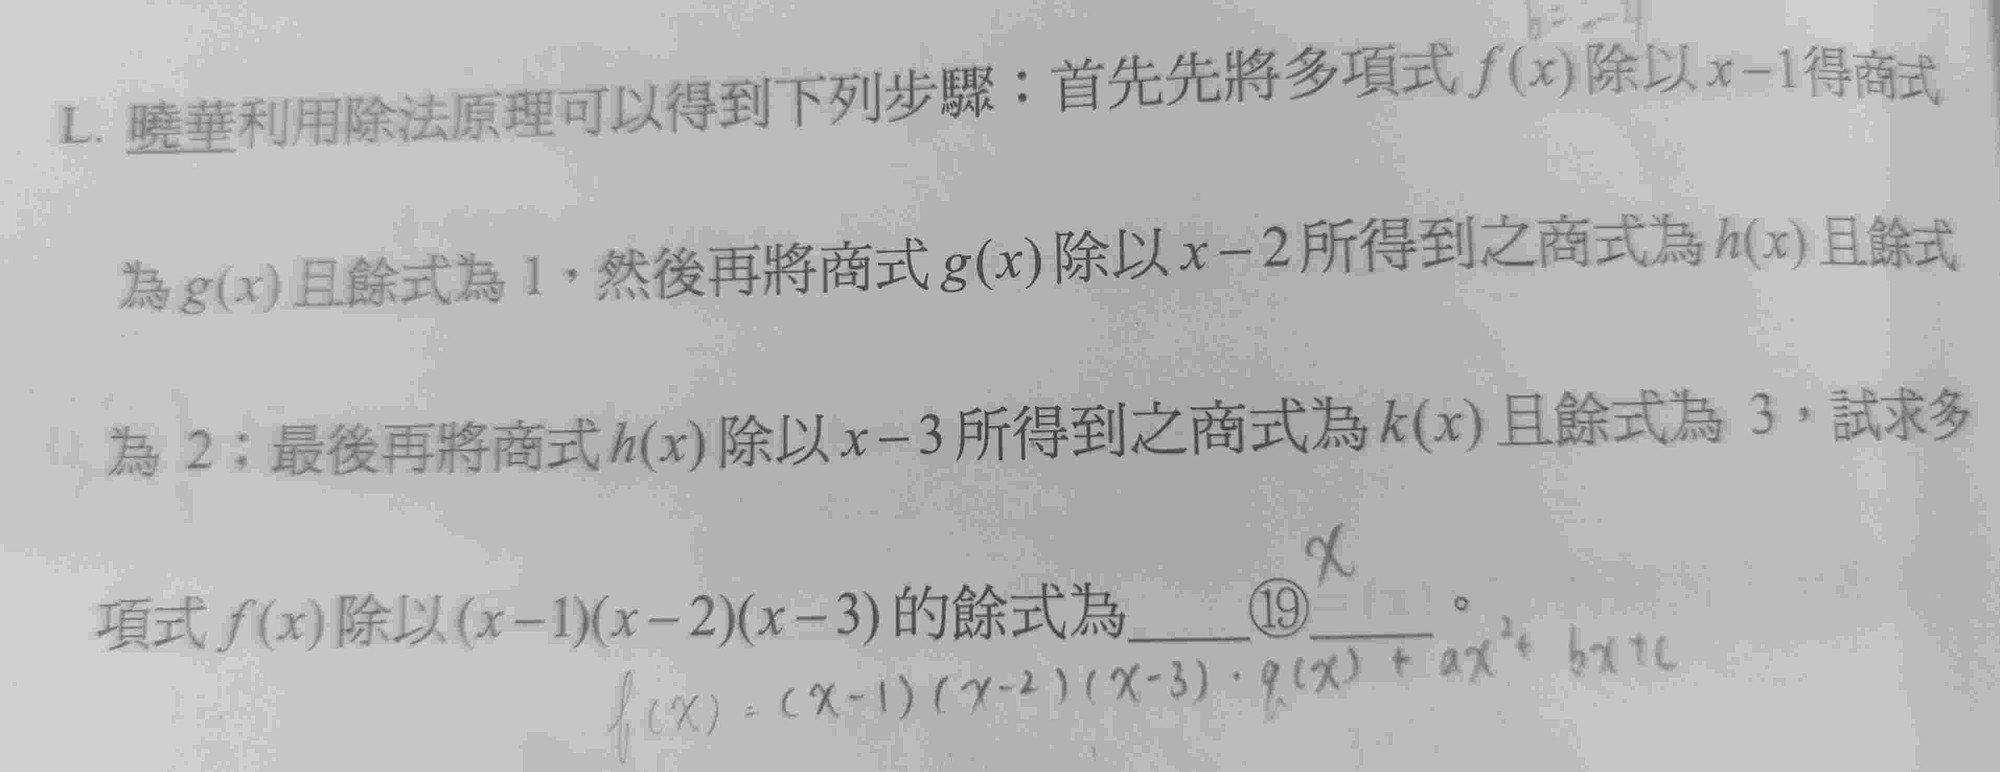 b = -4
L. 曉華利用除法原理可以得到下列步驟：首先先將多項式 f(x) 除以 x-1得商式
為 g(x) 且餘式為 1，然後再將商式 g(x) 除以 x-2 所得到之商式為 h(x) 且餘式
為 2；最後再將商式 h(x) 除以 x-3 所得到之商式為 k(x) 且餘式為 3，試求多
x
項式 f(x) 除以 (x-1)(x-2)(x-3) 的餘式為____⑲____。
f(x) = (x-1)(x-2)(x-3)·q(x) + ax²+ bx+c